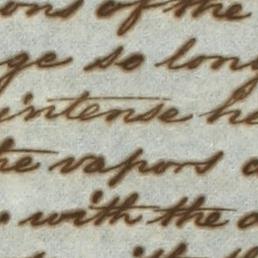 ons of the
ge so long
intense he
he vapors
with the